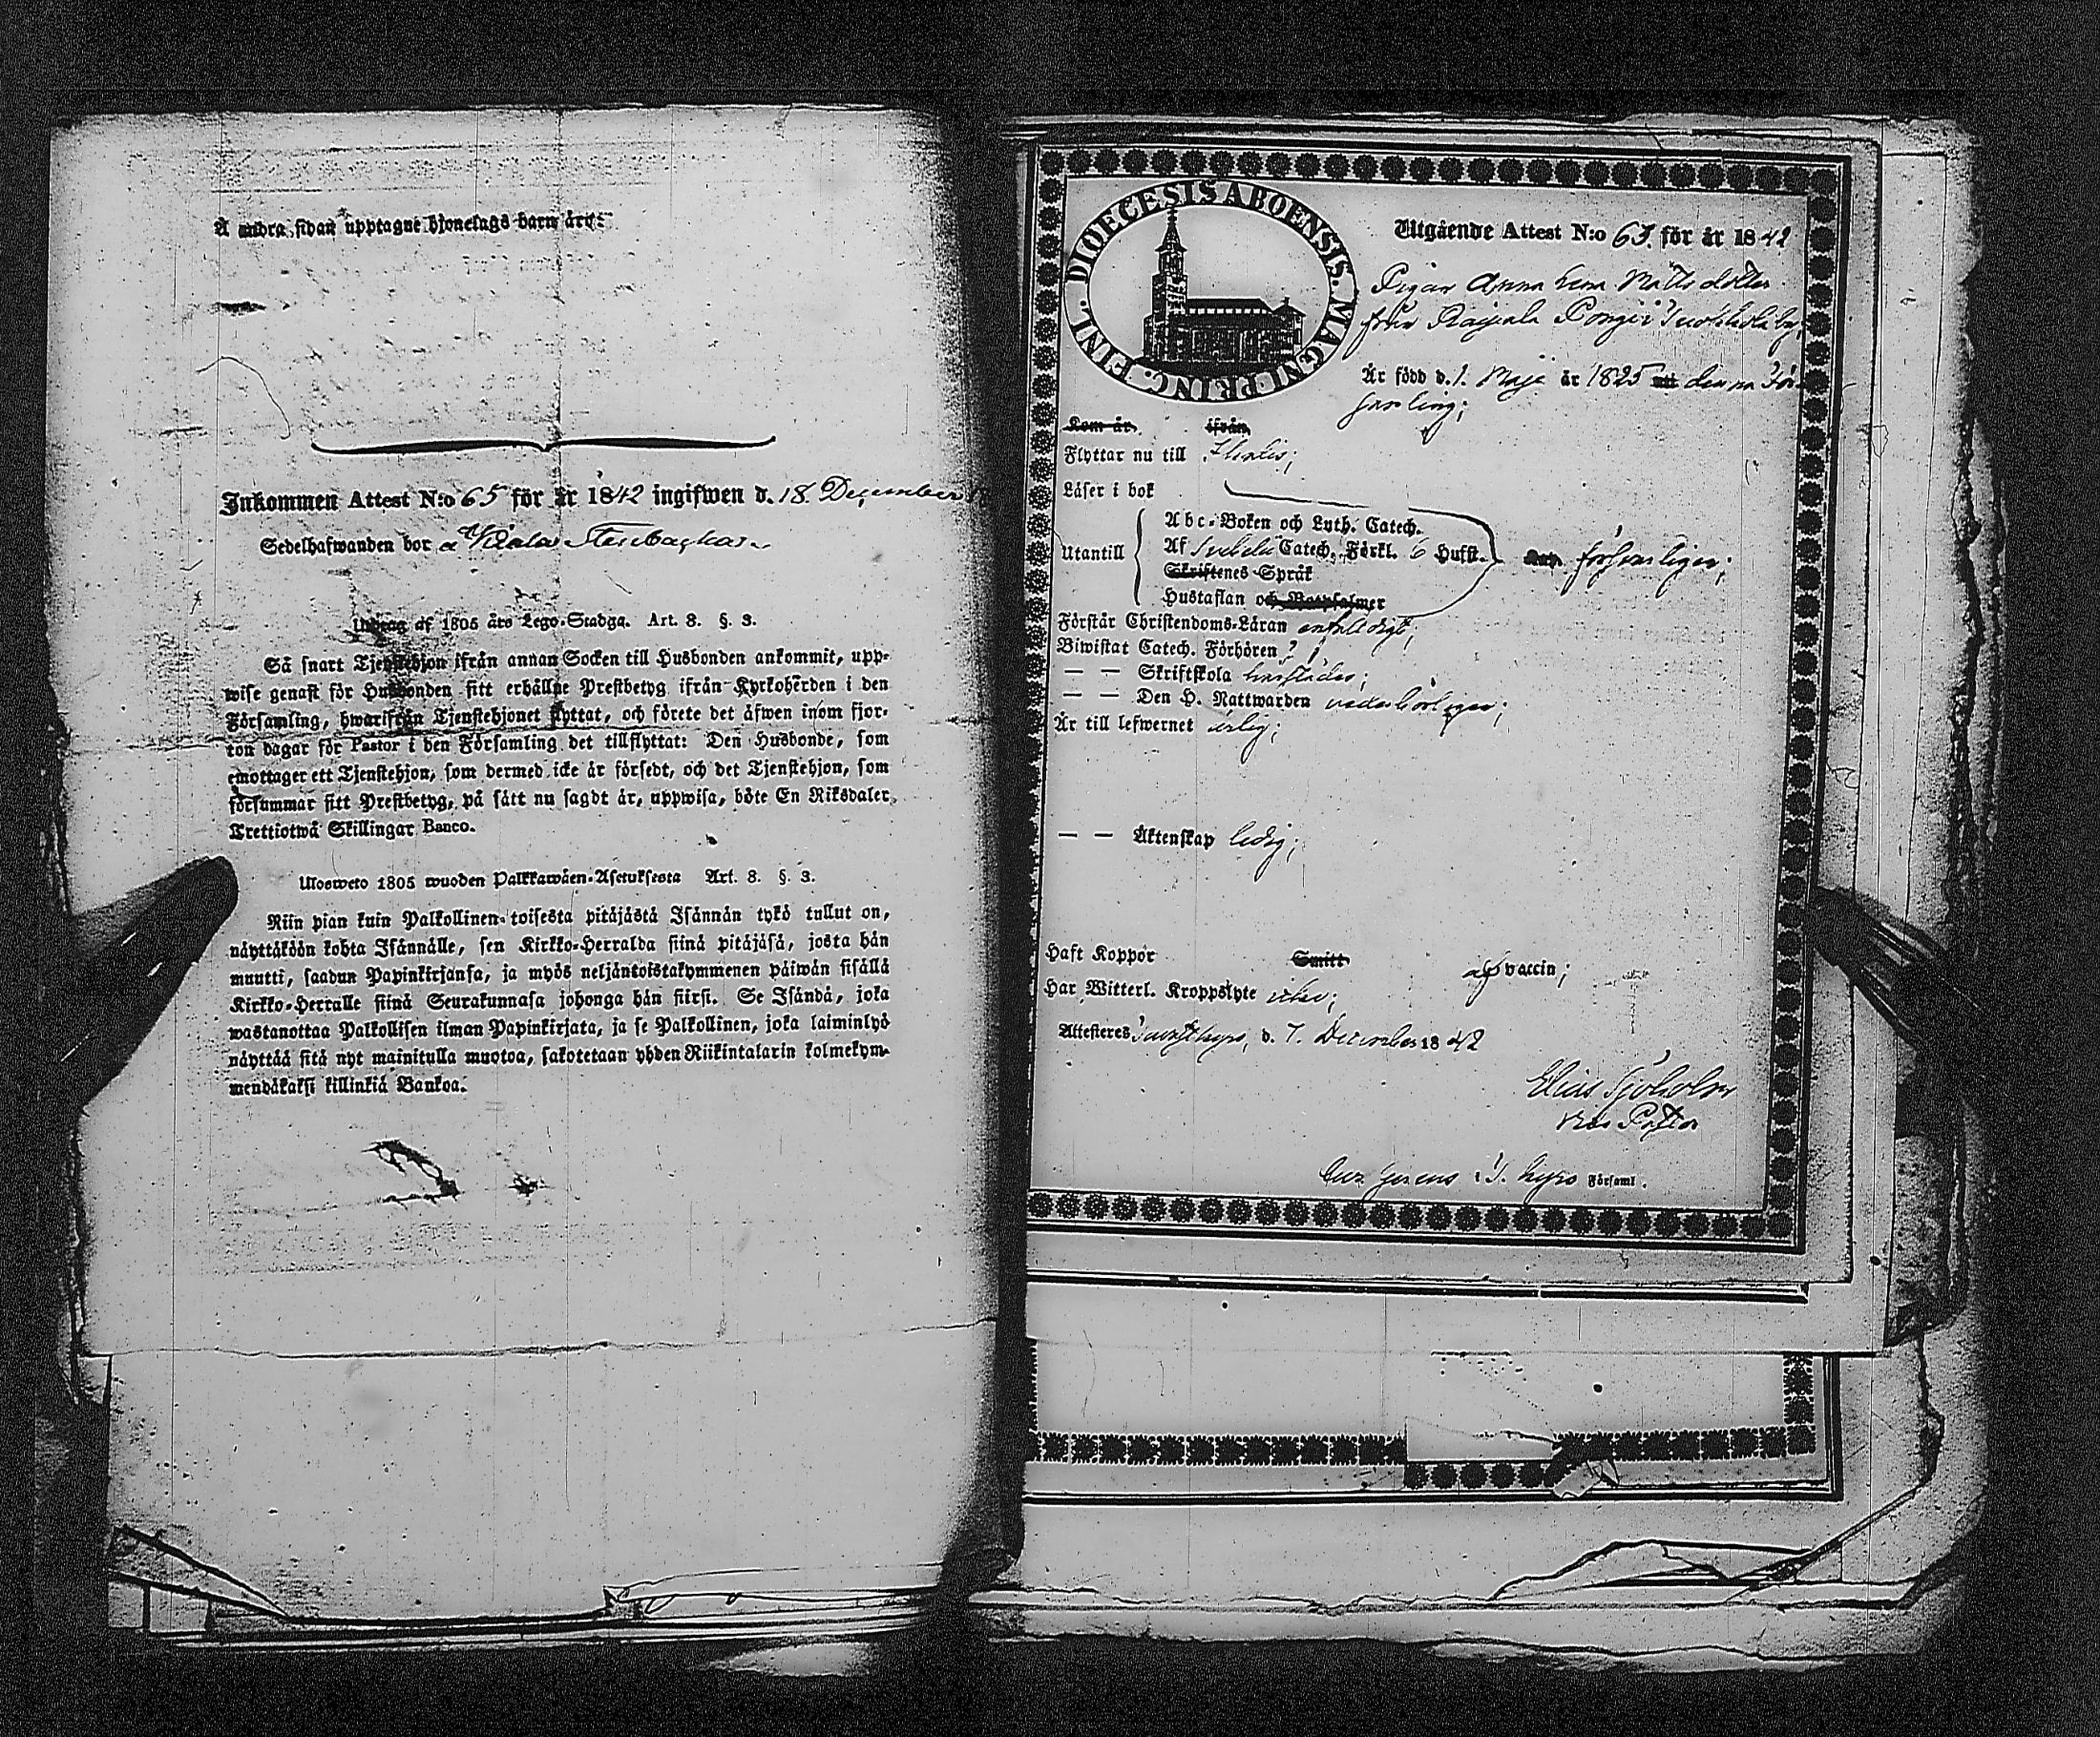 Å andra sidan upptagne hjonelags barn äro:
Inkommen Attest N:o 65 för år 1842 ingifwen d. 18. December
Sedelhafwanden bor
Utdrag af 1805 års Lego-Stadga. Art. 8. §. 3.
Så snart Tjenstehjon ifrån annan Socken till Husbonden ankommit, upp-
wise genast för Husbonden sitt erhållne Prestbetyg ifrån Kyrkoherden i den
Församling, hwarifrån Tjenstehjonet flyttat, och förete det äfwen inom fjor-
ton dagar för Pastor i den Församling det tillflyttat: Den Husbonde, som
emottager ett Tjenstehjon, som dermed icke är försedt, och det Tjenstehjon, som
försummar sitt Prestbetyg, på sätt nu sagdt är, uppwisa, böte En Riksdaler,
Trettiotwå Skillingar Banco.
Ulosweto 1805 wuoden Palkkawäen-Asetuksesta Art. 8. §. 3.
Niin pian kuin Palkollinen toisesta pitäjästä Isännän tykö tullut on,
näyttäköön kohta Isännälle, sen Kirkko-Herralda siinä pitäjäsä, josta hän
muutti, saadun Papinkirjansa, ja myös neljäntoistakymmenen päiwän sisällä
Kirkko-Herralle siinä Seurakunnasa johonga hän siirsi. Se Isändä, joka
wastanottaa Palkollisen ilman Papinkirjata, ja se Palkollinen, joka laiminlyö
näyttää sitä nyt mainitulla muotoa, sakotetaan yhden Riikintalarin kolmekym-
mendäkaksi killinkiä Bankoa.
DIOECESIS ABOENSIS. MAGNI PRINC. FINL.
Utgående Attest N:o 65. för år 1842
Pigan Anna Lena Matts dotter
från
Är född d. 1. Maji år 1825 att denna För-
samling;
Kom år ifrån
Flyttar nu till
Läser i bok
Abc-Boken och Luth. Catech.
Utantill Af Svebelii Catech. Förkl. 6 Hufst. försvarligen;
Skriftenes Språk
Hustaflan och Botpsalmer
Förstår Christendoms-Läran enfaldigt;
Biwistat Catech. Förhören
— — Skriftskola härstädes;
— — Den H. Nattwarden vederbörligen;
Är till lefwernet ärlig;
— — Äktenskap ledig;
Haft Koppor Smitt af vaccin;
Har Witterl. Kroppslyte
Attesteres d. 7. December 1842
Elias Sjöholm
vice Pastor
Cur. gerens i T. kyro Församl.